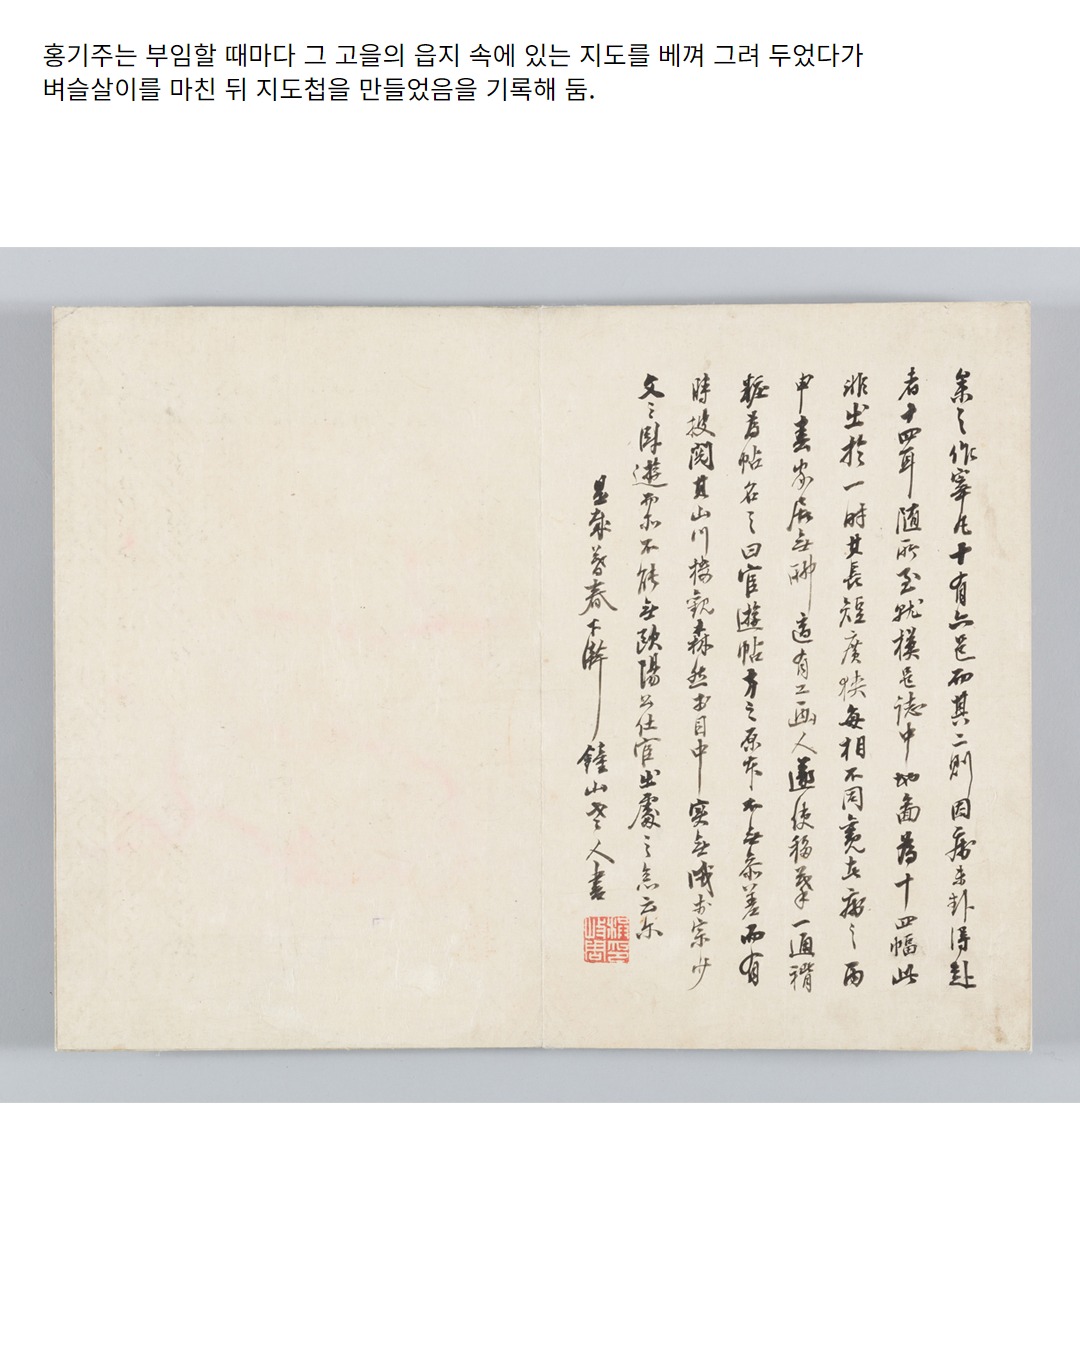 홍기주는 부임할 때마다 그 고을의 읍지 속에 있는 지도를 베껴 그려 두었다가
벼슬살이를 마친 뒤 지도첩을 만들었음을 기록해 둠.
余之作宰凡十有六邑而其二則因病未赴得赴
者十四耳随所至就模邑誌中地啚爲十四幅此
非出於一時其長短廣狹每相不同覽者病之丙
申春家居無聊適有工畵人遂使移摹一通褙
粧爲帖名之曰宦遊帖方之原本不無參差而有
時披閱其山川樓觀森然於目中實無減於宗少
文之臥遊而亦不能無歐陽公仕宦出處之
是歲暮春下澣 鐘山老人書